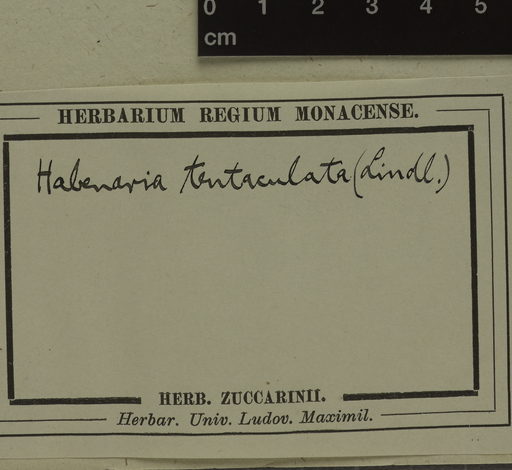 0 1 2 3 4 5
cm
HERBARIUM REGIUM MONACENSE.
Habenaria tentaculata (Lindl.)
HERB. ZUCCARINII.
Herbar. Univ. Ludov. Maximil.